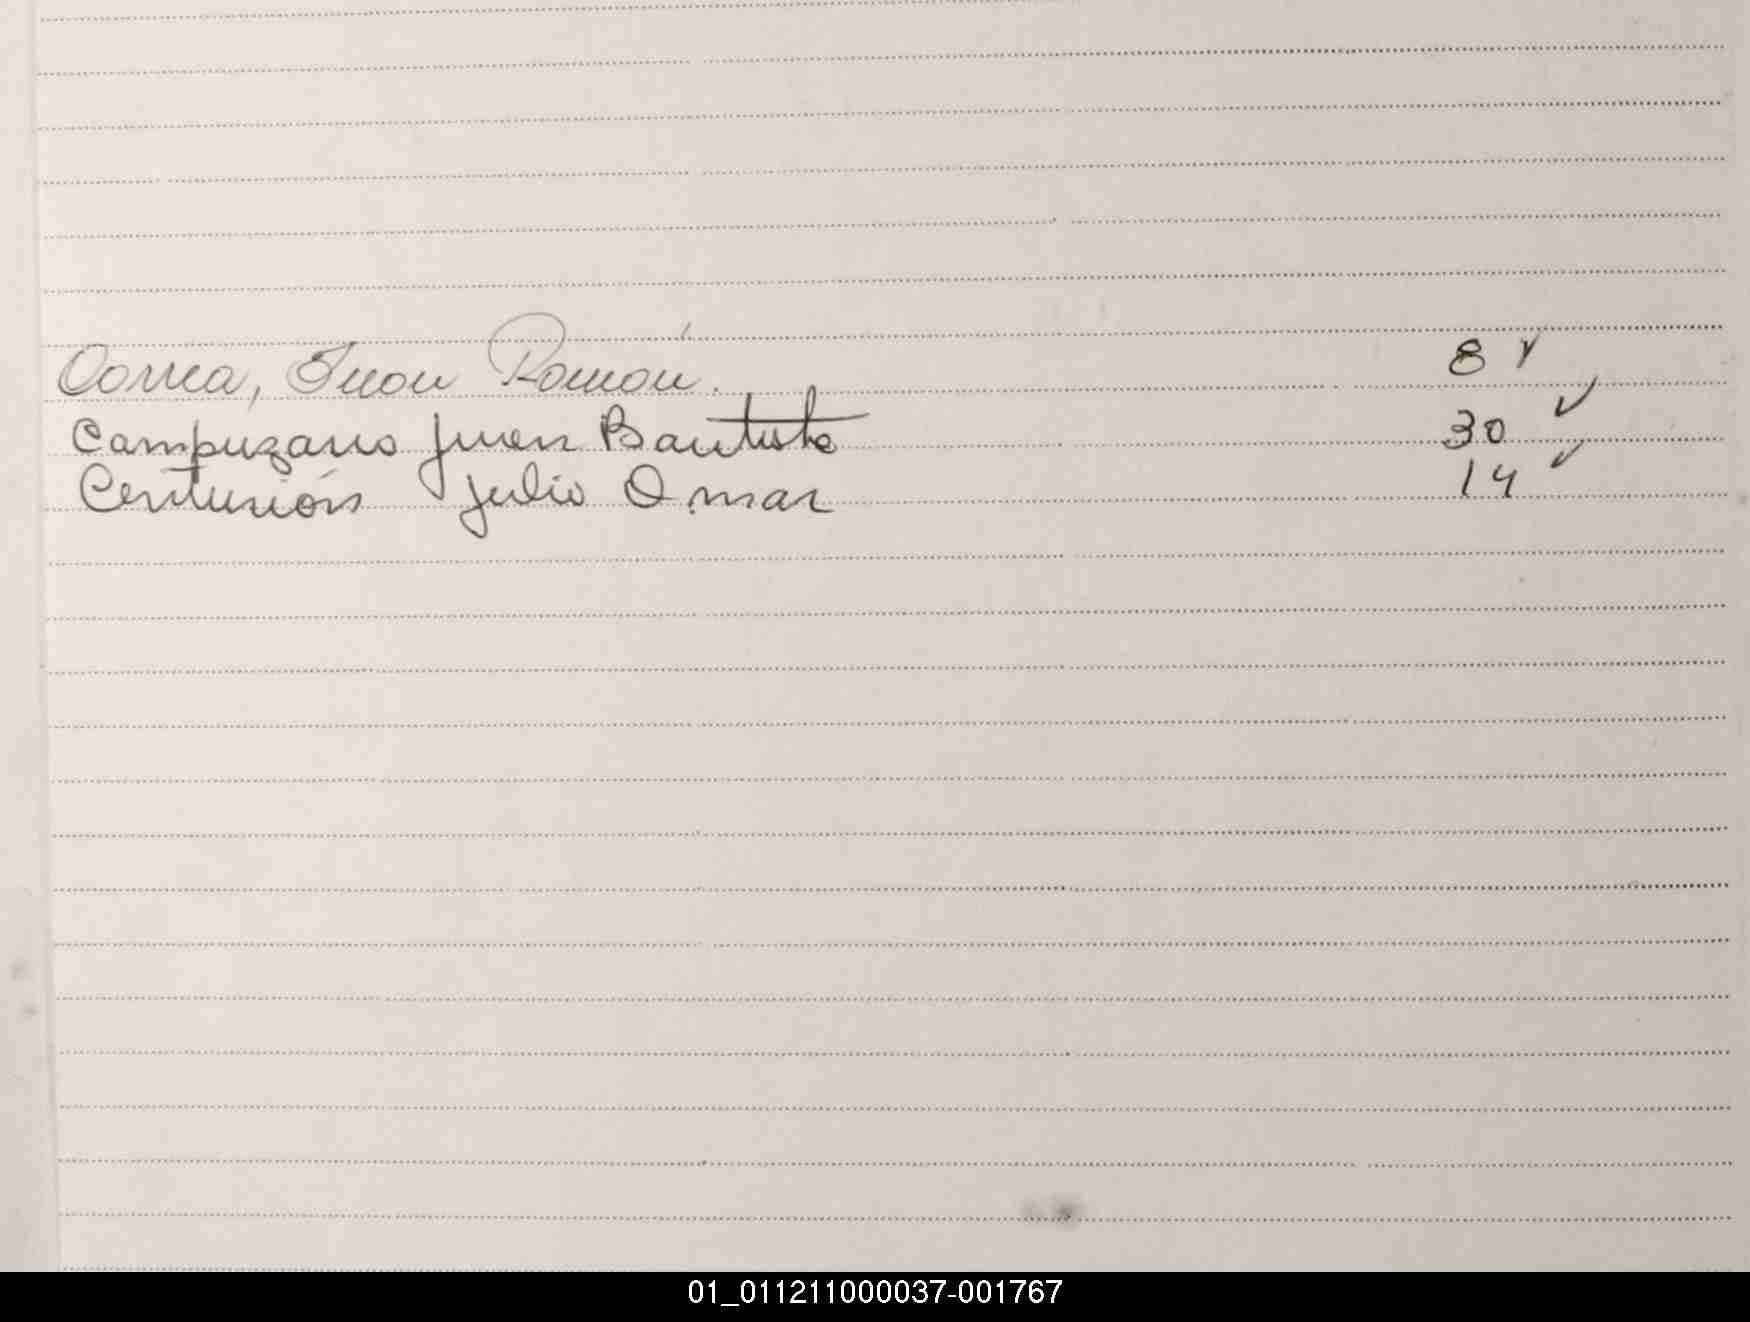 Correa, Juan Ramón. 8 ✓
Campuzano Juan Bautista 30 ✓
Centurión Julio Omar 14 ✓
01_011211000037-001767